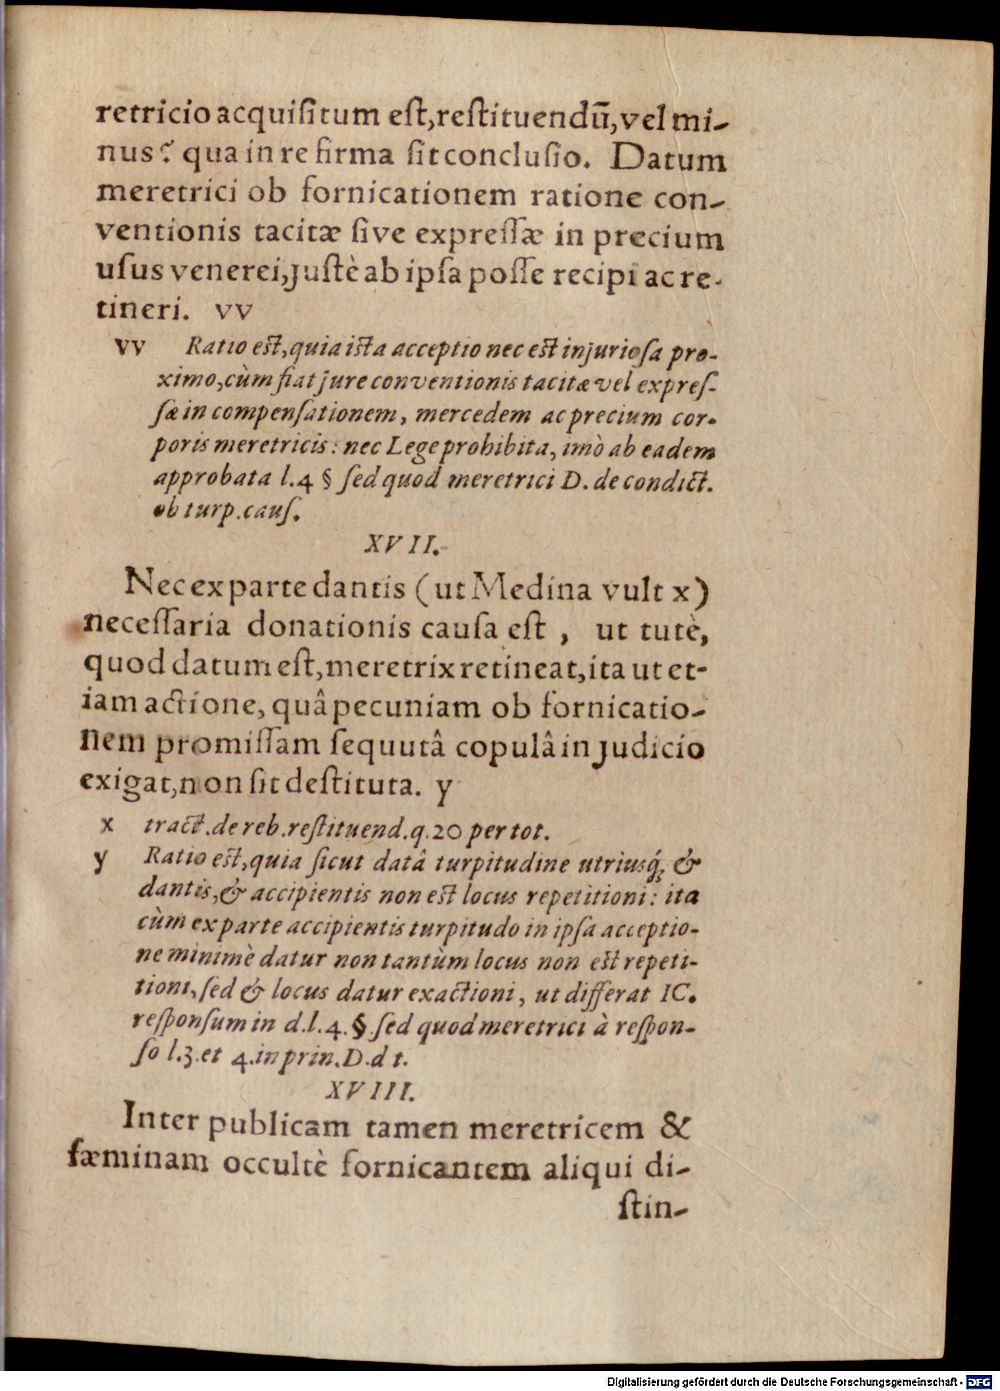 retricio acquisitum est, restituendū, vel mi-
nus? qua in re firma sit conclusio. Datum
meretrici ob fornicationem ratione con-
ventionis tacitæ sive expressæ in precium
usus venerei, justè ab ipsa posse recipi ac re-
tineri. vv
vv Ratio est, quia ista acceptio nec est injuriosa pro-
ximo, cùm fiat jure conventionis tacitæ vel expres-
sæ in compensationem, mercedem ac precium cor-
poris meretricis: nec Lege prohibita, imò ab eadem
approbata l.4 § sed quod meretrici D. de condict.
ob turp. caus.
XVII.
Nec ex parte dantis (ut Medina vult x)
necessaria donationis causa est, ut tutè,
quod datum est, meretrix retineat, ita ut et-
iam actione, quâ pecuniam ob fornicatio-
nem promissam sequutâ copulâ in judicio
exigat, non sit destituta. y
x tract. de reb. restituend. q. 20 per tot.
y Ratio est, quia sicut datâ turpitudine utriusq́; &
dantis, & accipientis non est locus repetitioni: ita
cùm ex parte accipientis turpitudo in ipsa acceptio-
ne minimè datur non tantùm locus non est repeti-
tioni, sed & locus datur exactioni, ut differat IC.
responsum in d.l.4.§. sed quod meretrici à respon-
so l.3. et 4. in prin. D. d t.
XVIII.
Inter publicam tamen meretricem &
fæminam occultè fornicantem aliqui di-
stin-
Digitalisierung gefördert durch die Deutsche Forschungsgemeinschaft - DFG